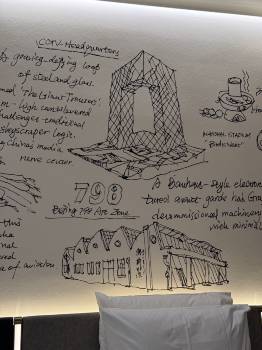 CCTV Headquarters
gravity-defying loop
of steel and glass.
"The Giant Trousers".
high cantilevered
challenges traditional
skyscraper logic
china's media
nerve center.
NATIONAL STADIUM
"Bird's Nest"
798
Beijing 798 Art Zone
A Bauhaus-style electron
tured avant garde hub. Gra
decommissioned machinery
with minimal
this
of aviation